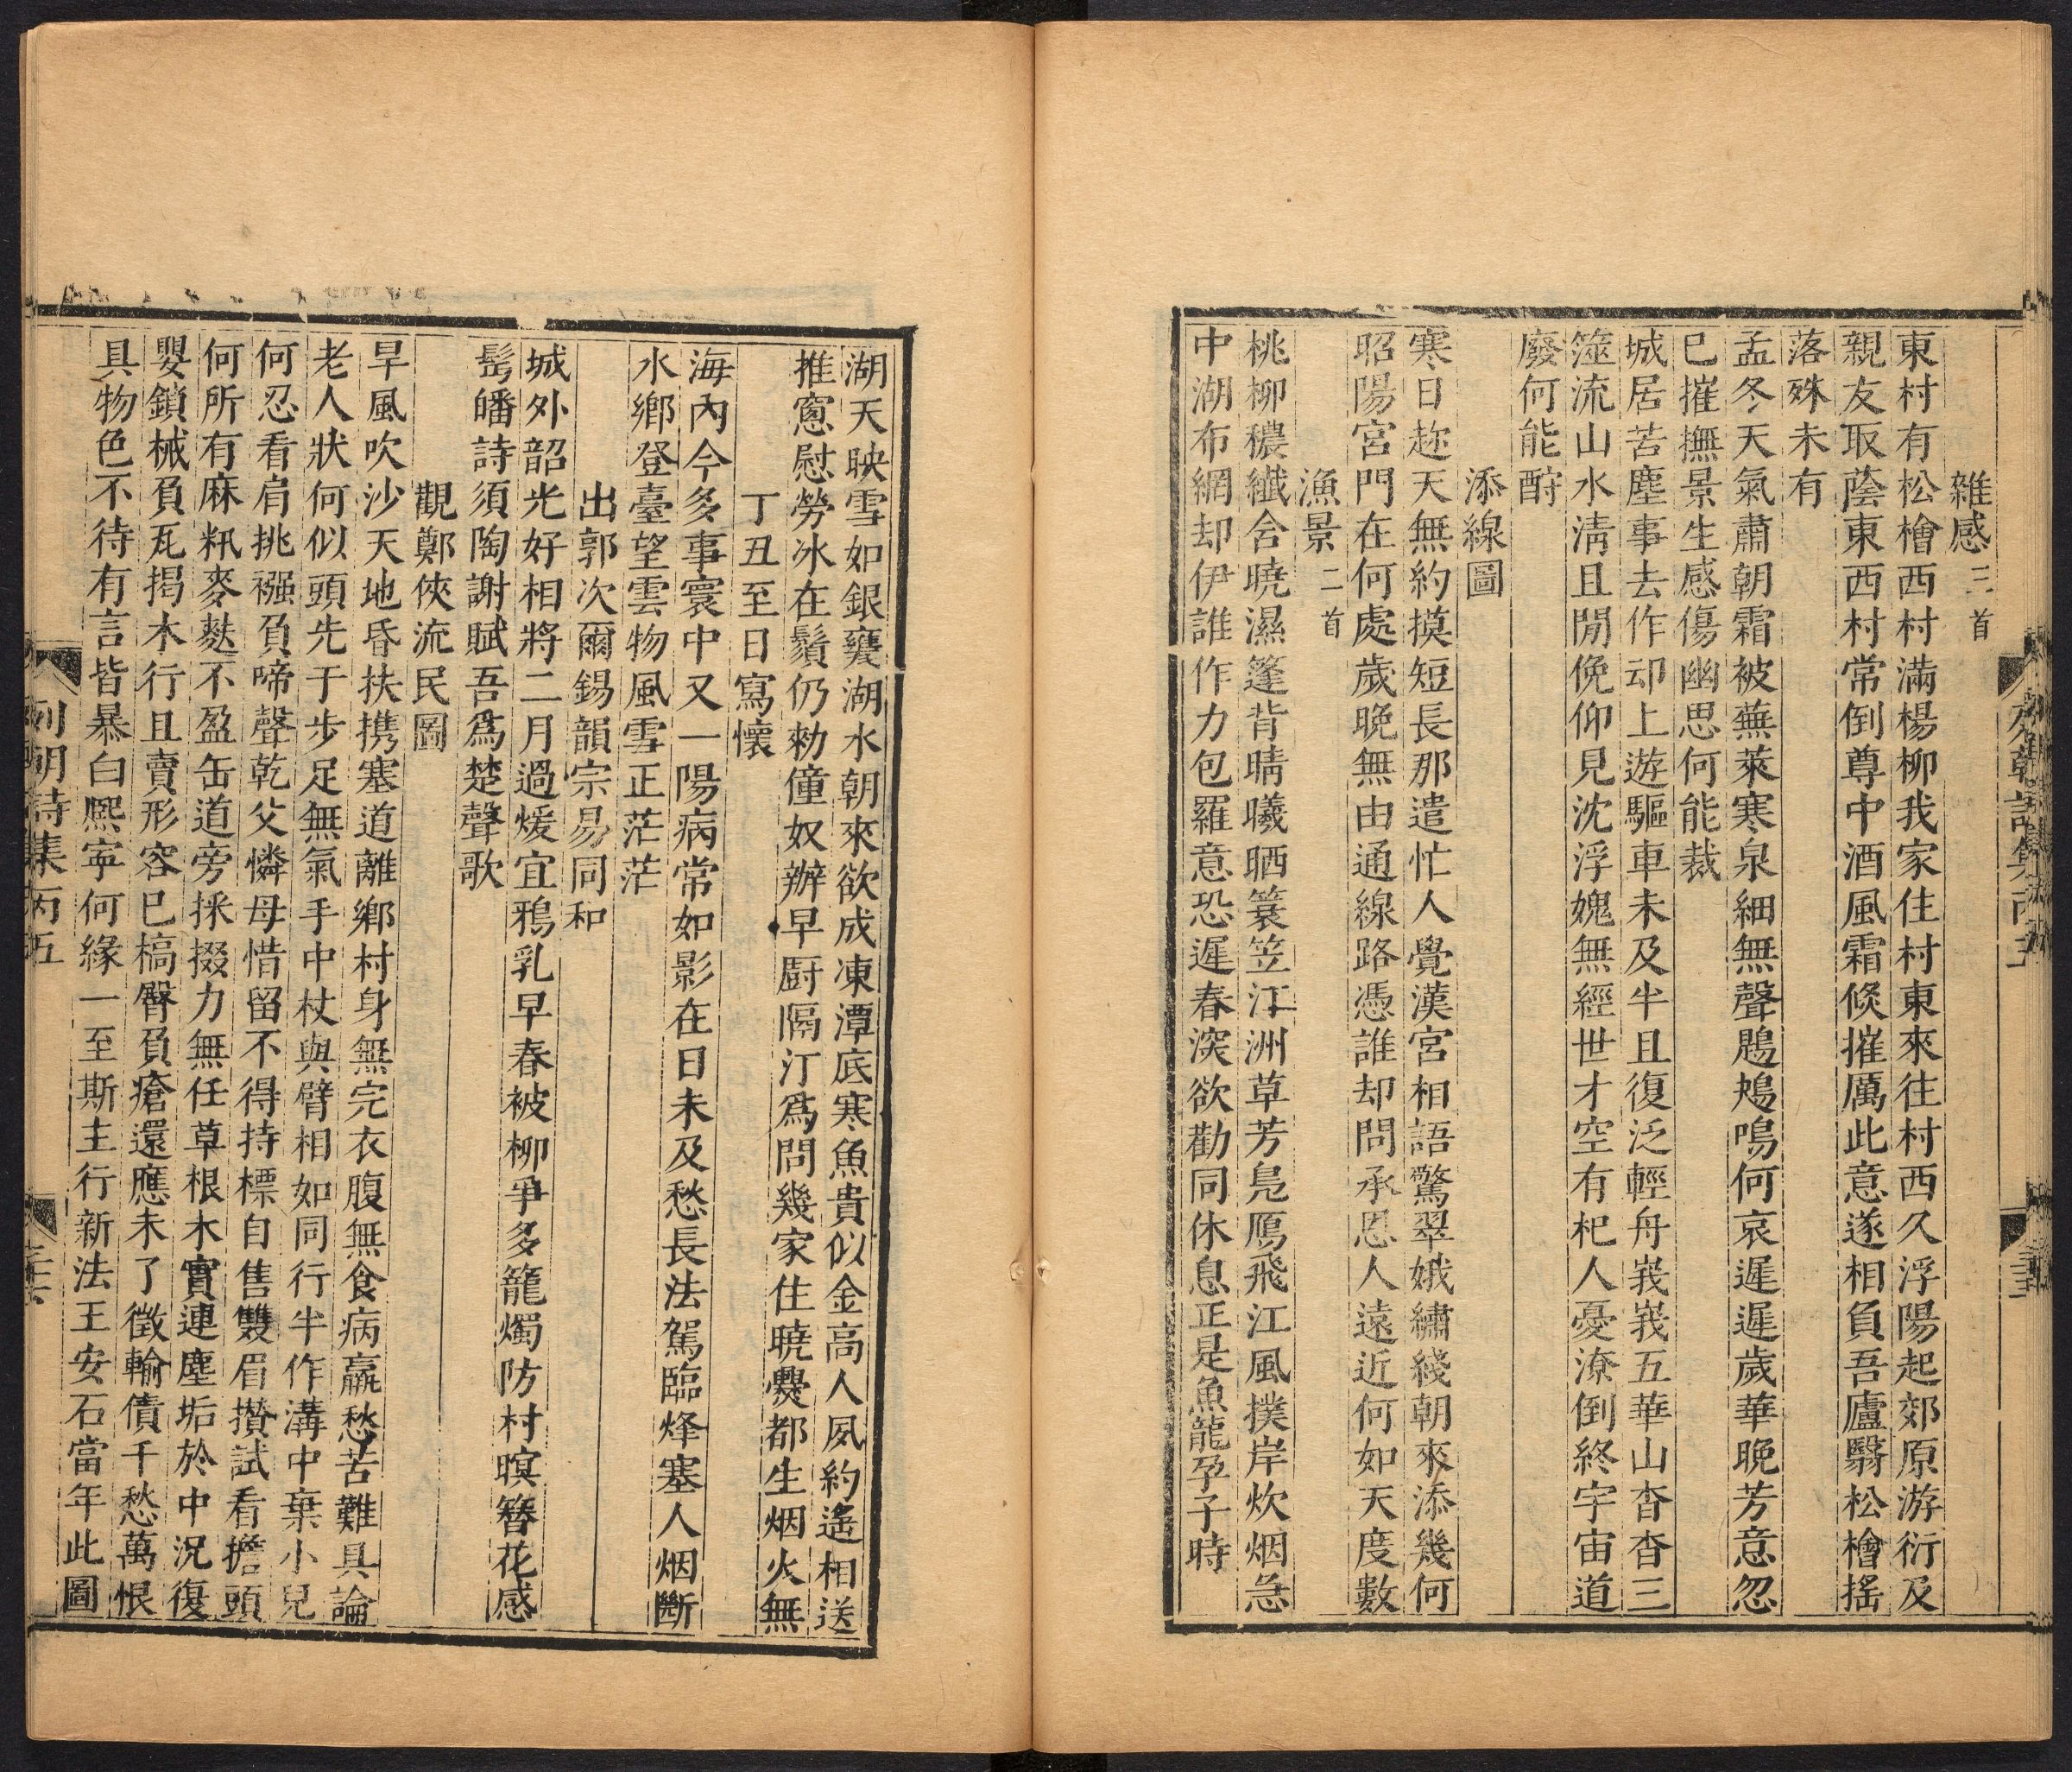 雜感三首
東村有松檜西村滿楊柳我家住村東來往村西久浮陽起郊原游衍及
親友取蔭東西村常倒尊中酒風霜倐摧厲此意遂相負吾廬翳松檜搖
落殊未有
孟冬天氣肅朝霜被蕪萊寒泉細無聲鶗鴂鳴何哀遲遲歲華晚芳意忽
巳摧撫景生感傷幽思何能裁
城居苦塵事去作邙上遊驅車未及半且復泛輕舟峩峩五華山杳杳三
澨流山水淸且閒俛仰見沈浮媿無經世才空有杞人憂潦倒終宇宙道
廢何能酧
添線圖
寒日趂天無約摸短長那遣忙人覺漢宮相語驚翠娥繡綫朝來添幾何
昭陽宮門在何處歲晚無由通線路憑誰却問承恩人遠近何如天度數
漁景二首
桃柳穠纖含曉濕篷背晴曦晒簑笠汀洲草芳鳧鴈飛江風撲岸炊烟急
中湖布網却伊誰作力包羅意恐遲春深欲勸同休息正是魚龍孕子時
湖天映雪如銀甕湖水朝來欲成凍潭底寒魚貴似金高人夙約遙相送
推窻慰勞冰在鬚仍勑僮奴辦早厨隔汀爲問幾家住曉爨都生烟火無
丁丑至日寫懷
海內今多事寰中又一陽病常如影在日未及愁長法駕臨烽塞人烟斷
水鄉登臺望雲物風雪正茫茫
出郭次爾錫韻宗易同和
城外韶光好相將二月過煖宜鴉乳早春被柳爭多籠燭防村暝簪花感
髩皤詩須陶謝賦吾爲楚聲歌
觀鄭俠流民圖
旱風吹沙天地昏扶携塞道離鄉村身無完衣腹無食病羸愁苦難具論
老人狀何似頭先于步足無氣手中杖與臂相如同行半作溝中棄小兒
何忍看肩挑襁負啼聲乾父憐母惜留不得持標自售雙眉攢試看擔頭
何所有麻籸麥麩不盈缶道旁採掇力無任草根木實連塵垢於中況復
嬰鎖械負瓦揭木行且賣形容巳槁臀負瘡還應未了徵輸債千愁萬恨
具物色不待有言皆暴白熙寧何緣一至斯主行新法王安石當年此圖
列朝詩集丙五